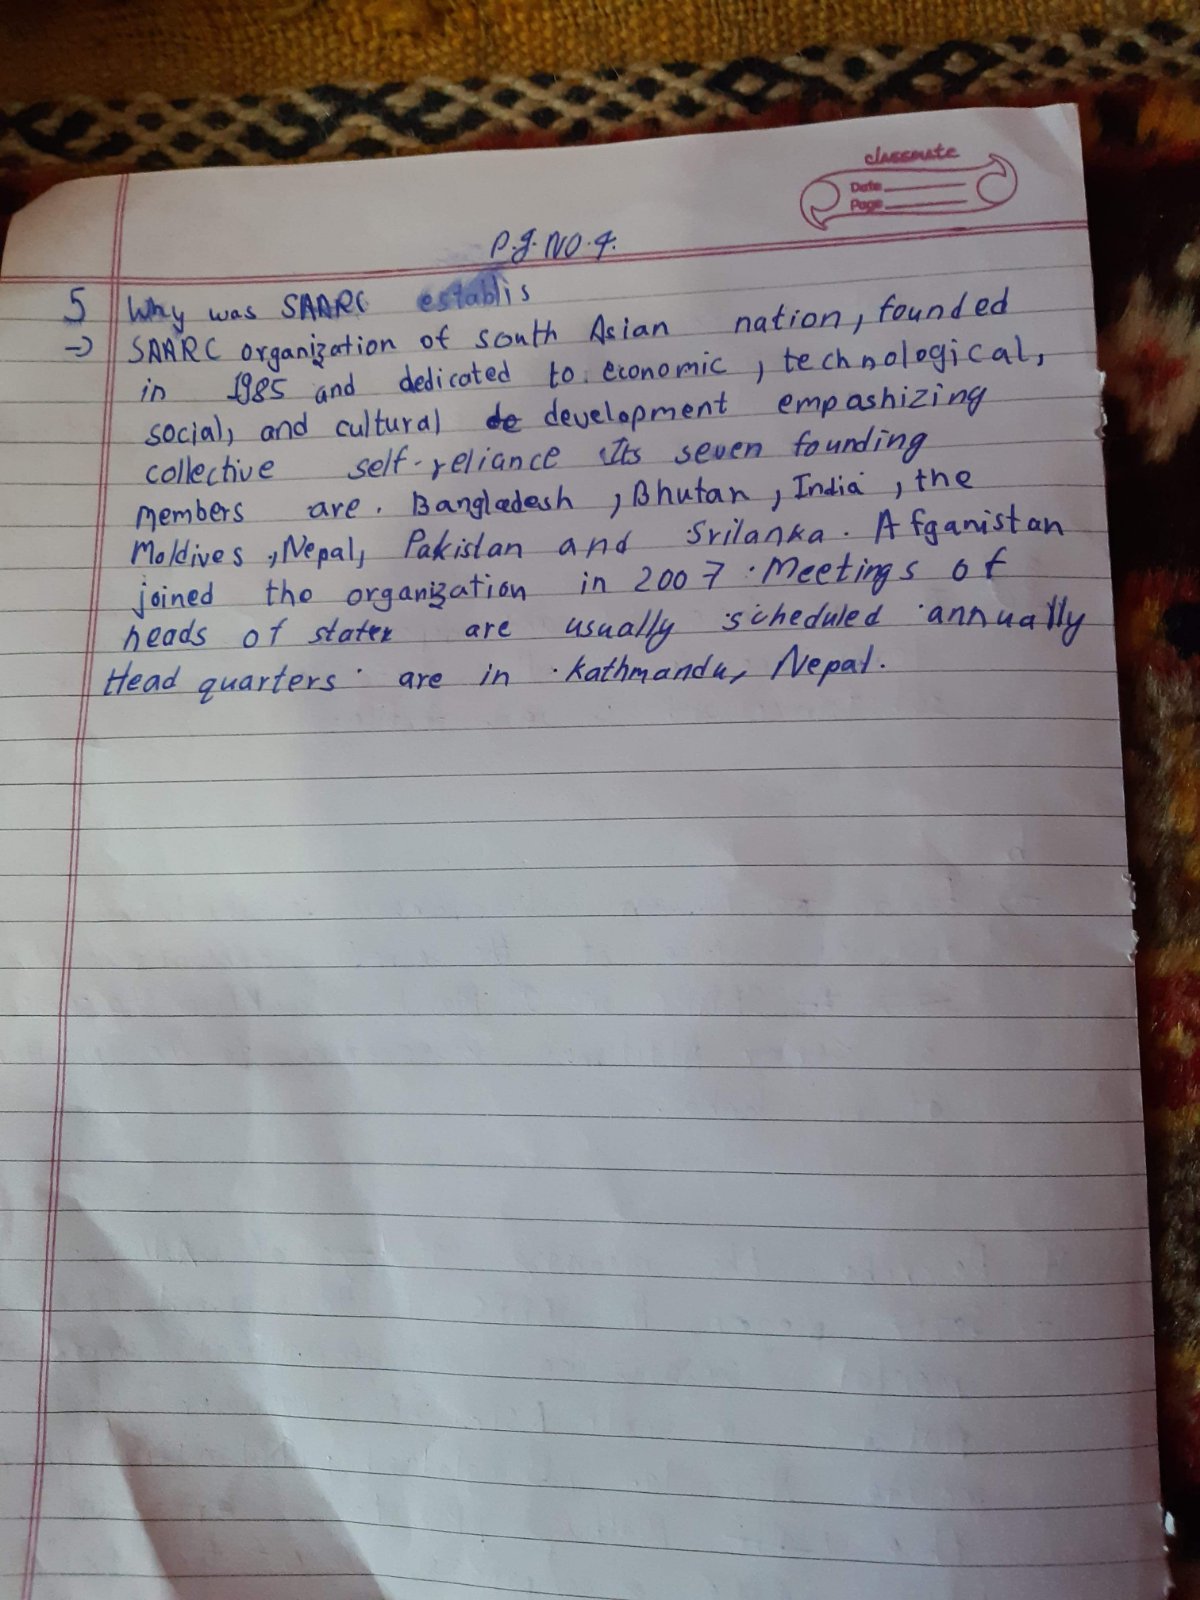 classmate
Date
Page
P.g. NO. 4.
5 Why was SAARC establis
→ SAARC organization of south Asian nation, founded
in 1985 and dedicated to economic, technological,
social, and cultural de development empashizing
collective self-reliance Its seven founding
members are. Bangladesh, Bhutan, India, the
Moldives, Nepal, Pakistan and Srilanka. Afganistan
joined the organization in 2007. Meetings of
heads of state are usually scheduled annually
Head quarters are in Kathmandu, Nepal.